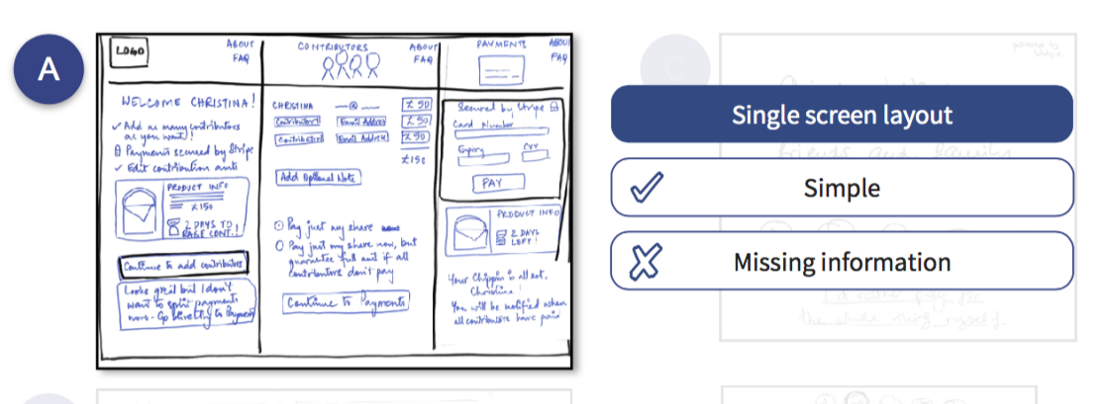 A
LOGO
ABOUT
FAQ
WELCOME CHRISTINA!
✓ Add as many contributors
as you want!
Payments secured by Stripe
✓ Edit contribution amts
PRODUCT INFO
£150
2 DAYS TO
Continue to add contributors
Looks great but I don't
want to split payments
now - Go directly to Payments
CONTRIBUTORS
ABOUT
FAQ
CHRISTINA — @ — £50
Contributor 1 Email Address £50
Contributor Email Address £50
£150
Add Optional Note
Pay just my share
Pay just my share now, but
guarantee full amt if all
contributors don't pay
Continue to Payments
PAYMENTS
ABOU
FAQ
Secured by Stripe
Card Number
Expiry CVV
PAY
PRODUCT INFO
2 DAYS
LEFT!
Your Chippin is all set,
Christina!
You will be notified when
all contributors have paid
Single screen layout
Simple
Missing information
friends and family
I'd rather pay for
the whole thing myself.